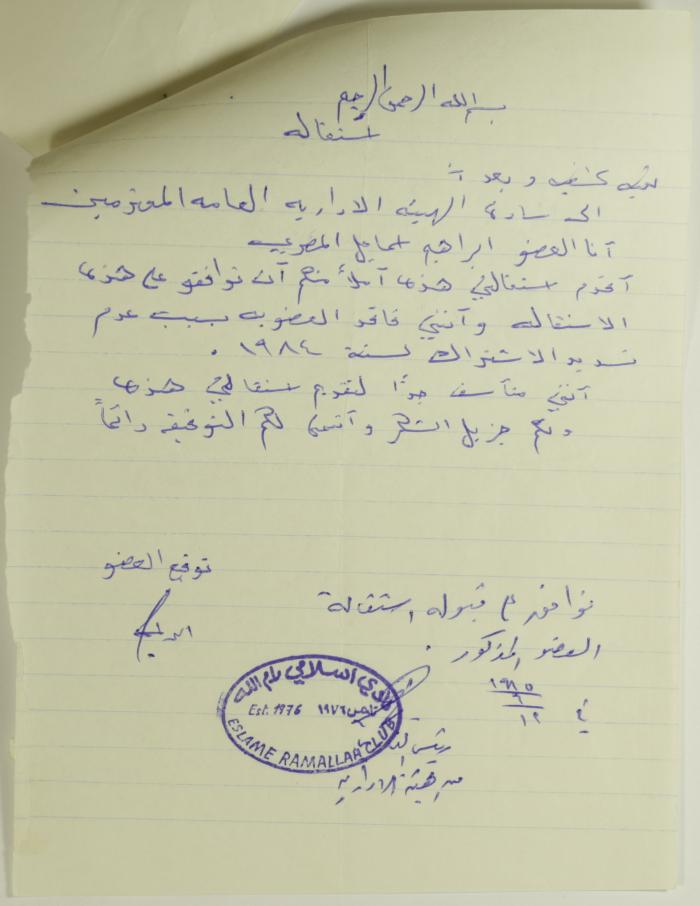 بسم الله الرحمن الرحيم
استقاله
تحية طيبه وبعد :
الى سادة الهيئه الاداريه العامه المحترمين
أنا العضو ابراهيم اسماعيل المصري
أقدم استقالتي هذه آملاً منكم أن توافقو على هذه
الاستقاله وأنني فاقد العضويه بسبب عدم
تسديد الاشتراك لسنة ١٩٨٤ .
أنني متأسف جدًا لتقديم استقالتي هذه
ولكم جزيل الشكر وأتمنى لكم التوفيق دائماً
توقيع العضو
نوافق على قبوله استقالة
العضو المذكور .
في
١٩٨٥
١٢
نادي اسلامي رام الله
Est. 1976 تأسس ١٩٧٦
ESLAME RAMALLAH CLUB
رئيس
الهيئة الادارية